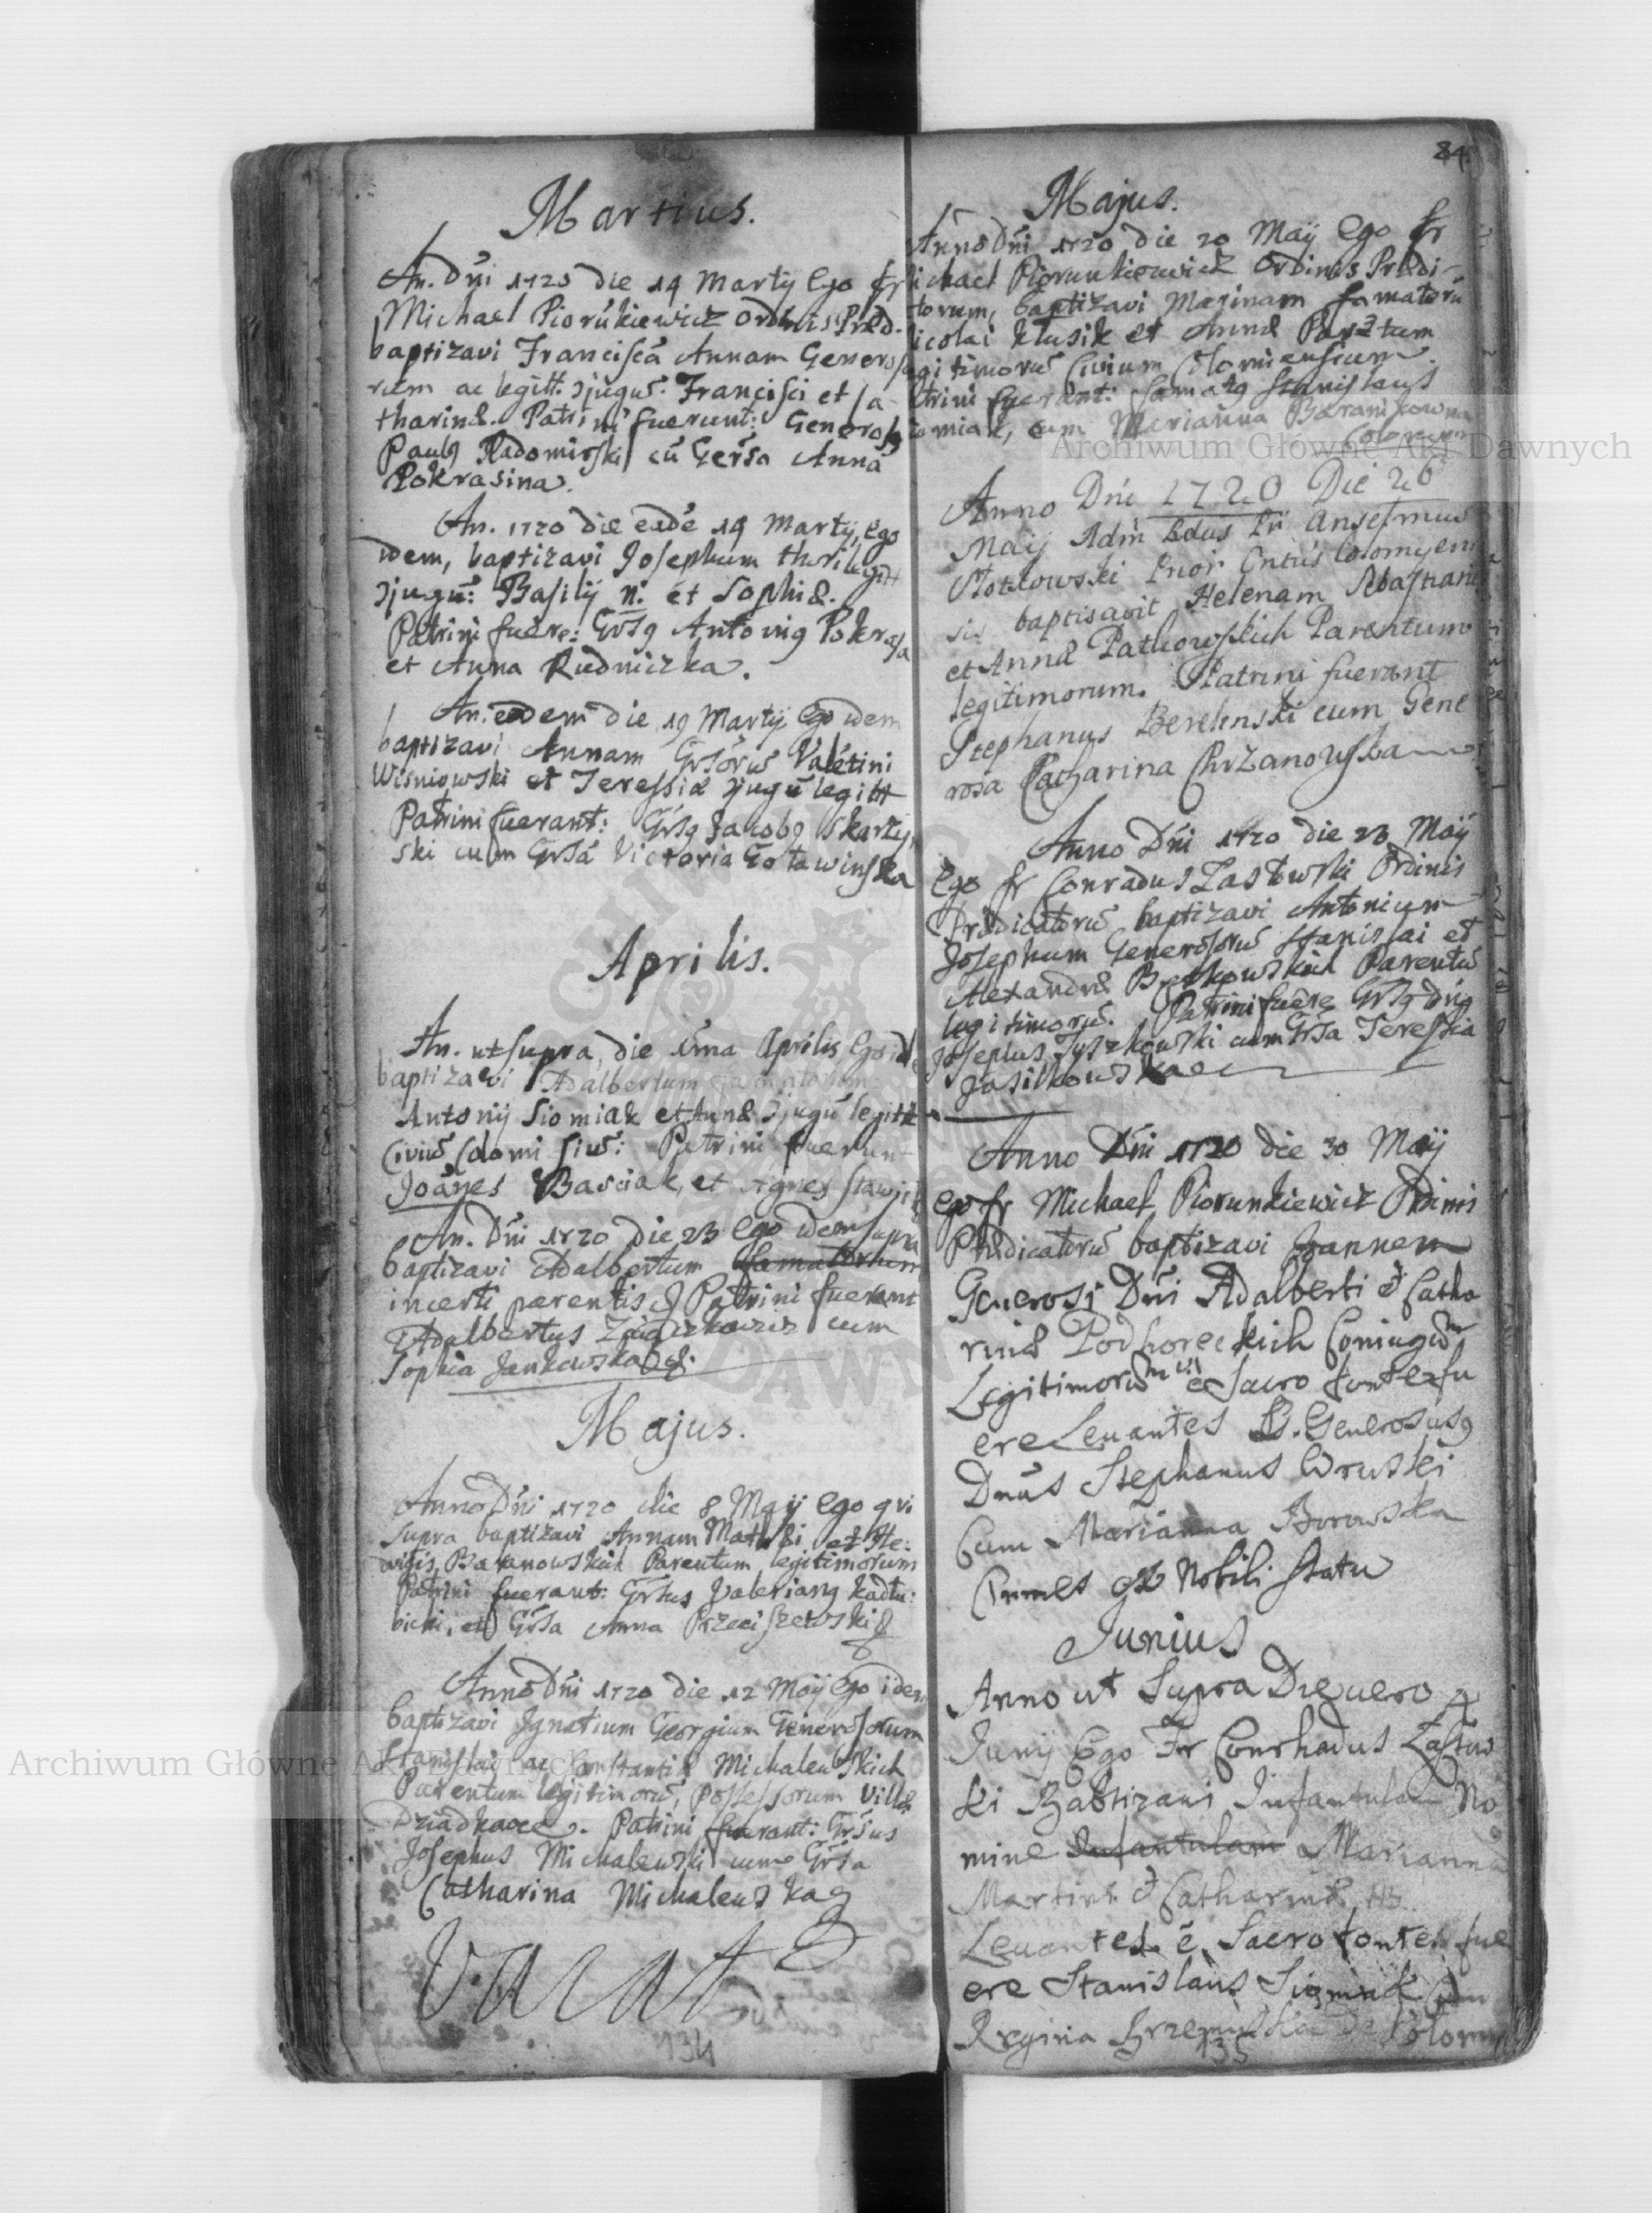 Martius.
An. Dni 1720 die 14 Martij Ego fr
Michael Piorukiewicz Ordinis Præd.
baptizavi Franciscã Annam Generoso
rum ac legitt. Ɔjugũ. Francisci et Ca
tharinæ. Patrini fuerunt: Generos9
Paul9 Radomirski cũ Gersa Anna
Pokrasina.
An. 1720 die eade 14 Martij, Ego
idem, baptizavi Josephum legitt
Ɔjugũ: Basilij n. et Sophiæ.
Patrini fuere: Grs9 Antoni9 Pokrasa
et Anna Rudniczka.
An. eodem die 19 Martij Ego idem
baptizavi Annam Grsorũ Valetini
Wisniowski et Teressiæ Ɔjugũ legitt
Patrini fuerant: Grs9 Jacob9 Skarzy,
ski cum Grsa Victoria Gotawinska
Aprilis.
An. ut supra, die 1ma Aprilis Ego id
baptizavi Adalbertum famatorum
Antonij Siomiak et Annæ Ɔjugũ legitt
Civiũ Colomi siũ: Patrini fuerunt
Joanes Basciak, et Agnes
An. Dni 1720 die 23 Ego idem supra
baptizavi Adalbertum famatorum
incerti parentis Patrini fuerant
Adalbertus cum
Sophia Jankowska
Majus.
Anno Dni 1720 die 8 Maij Ego qui
supra baptizavi Annam Mathæi et He:
dvigis Baranowskich Parentum legitimorum
Patrini fuerant: Grsus Valerian9 Kadłu:
bicki, et Grsa Anna Przeciszewski
Anno Dni 1720 die 12 Maij Ego idem
baptizavi Ignatium Georgium Generosorum
Stanislai ac Constantiæ Michalewskich
Parentum legitimorũ, Possessorum Villæ
Dziadkowce. Patrini fuerant: Grsus
Josephus Michalewski cum Grsa
Catharina Michalewska
Vacat
134
84
Majus.
Anno Dni 1720 die 20 Maij Ego fr
ichael Piorunkiewicz Ordinis Prædi-
torum, baptizavi Marinam famatorũ
icolai Klusik et Annæ Parẽtum
gitimorũ Civium Colomiensium.
trini fuerant: famat9 Stanislaus
iomiak, cum Marianna Baranikowna
Anno Dni 1720 Die 26
Maij Adm Rdus Pr Anselmus
Prior Cntus Colomyen
sis baptisavit Helenam Sebastiani
et Annæ Patkowskich Parentum
legitimorum. Patrini fuerant
Stephanus Berelnski cum Gene
rosa Catharina Chrzanowska
Anno Dni 1720 die 23 Maij
Ego fr Conradus Zastwski Ordinis
Prædicatorũ baptizavi Antonium
Josephum Generosorũ Stanislai et
Alexandræ Parentũ
legitimorũ. Patrini fuere Grs9 Dn9
Josephus Tyszkowski cum Grsa Teressia
Jasilkowska
Anno Dni 1720 die 30 Maij
ego fr Michael Piorunkiewicz Ordinis
Prædicatorũ baptizavi Joannem
Generosi Dni Adalberti et Catha
rinæ Podhoreckich Coniugũm
Legitimorũm e Sacro fonte fu
ere Levantes G. Generosus9
Dnus Stephanus Wruski
Cum Marianna
Omnes ex Nobili statu
Junius
Anno ut Supra Die vero
Junij Ego Fr Conrhadus Zastws
ki Babtizavi Infantulam No
mine Infantulam Marianna
Martini et Catharinæ
Levantes e Sacro fonte fue
ere Stanislaus Siomiak Cum
Regina de Colom
135
Archiwum Główne Akt Dawnych
Archiwum Główne Akt Dawnych